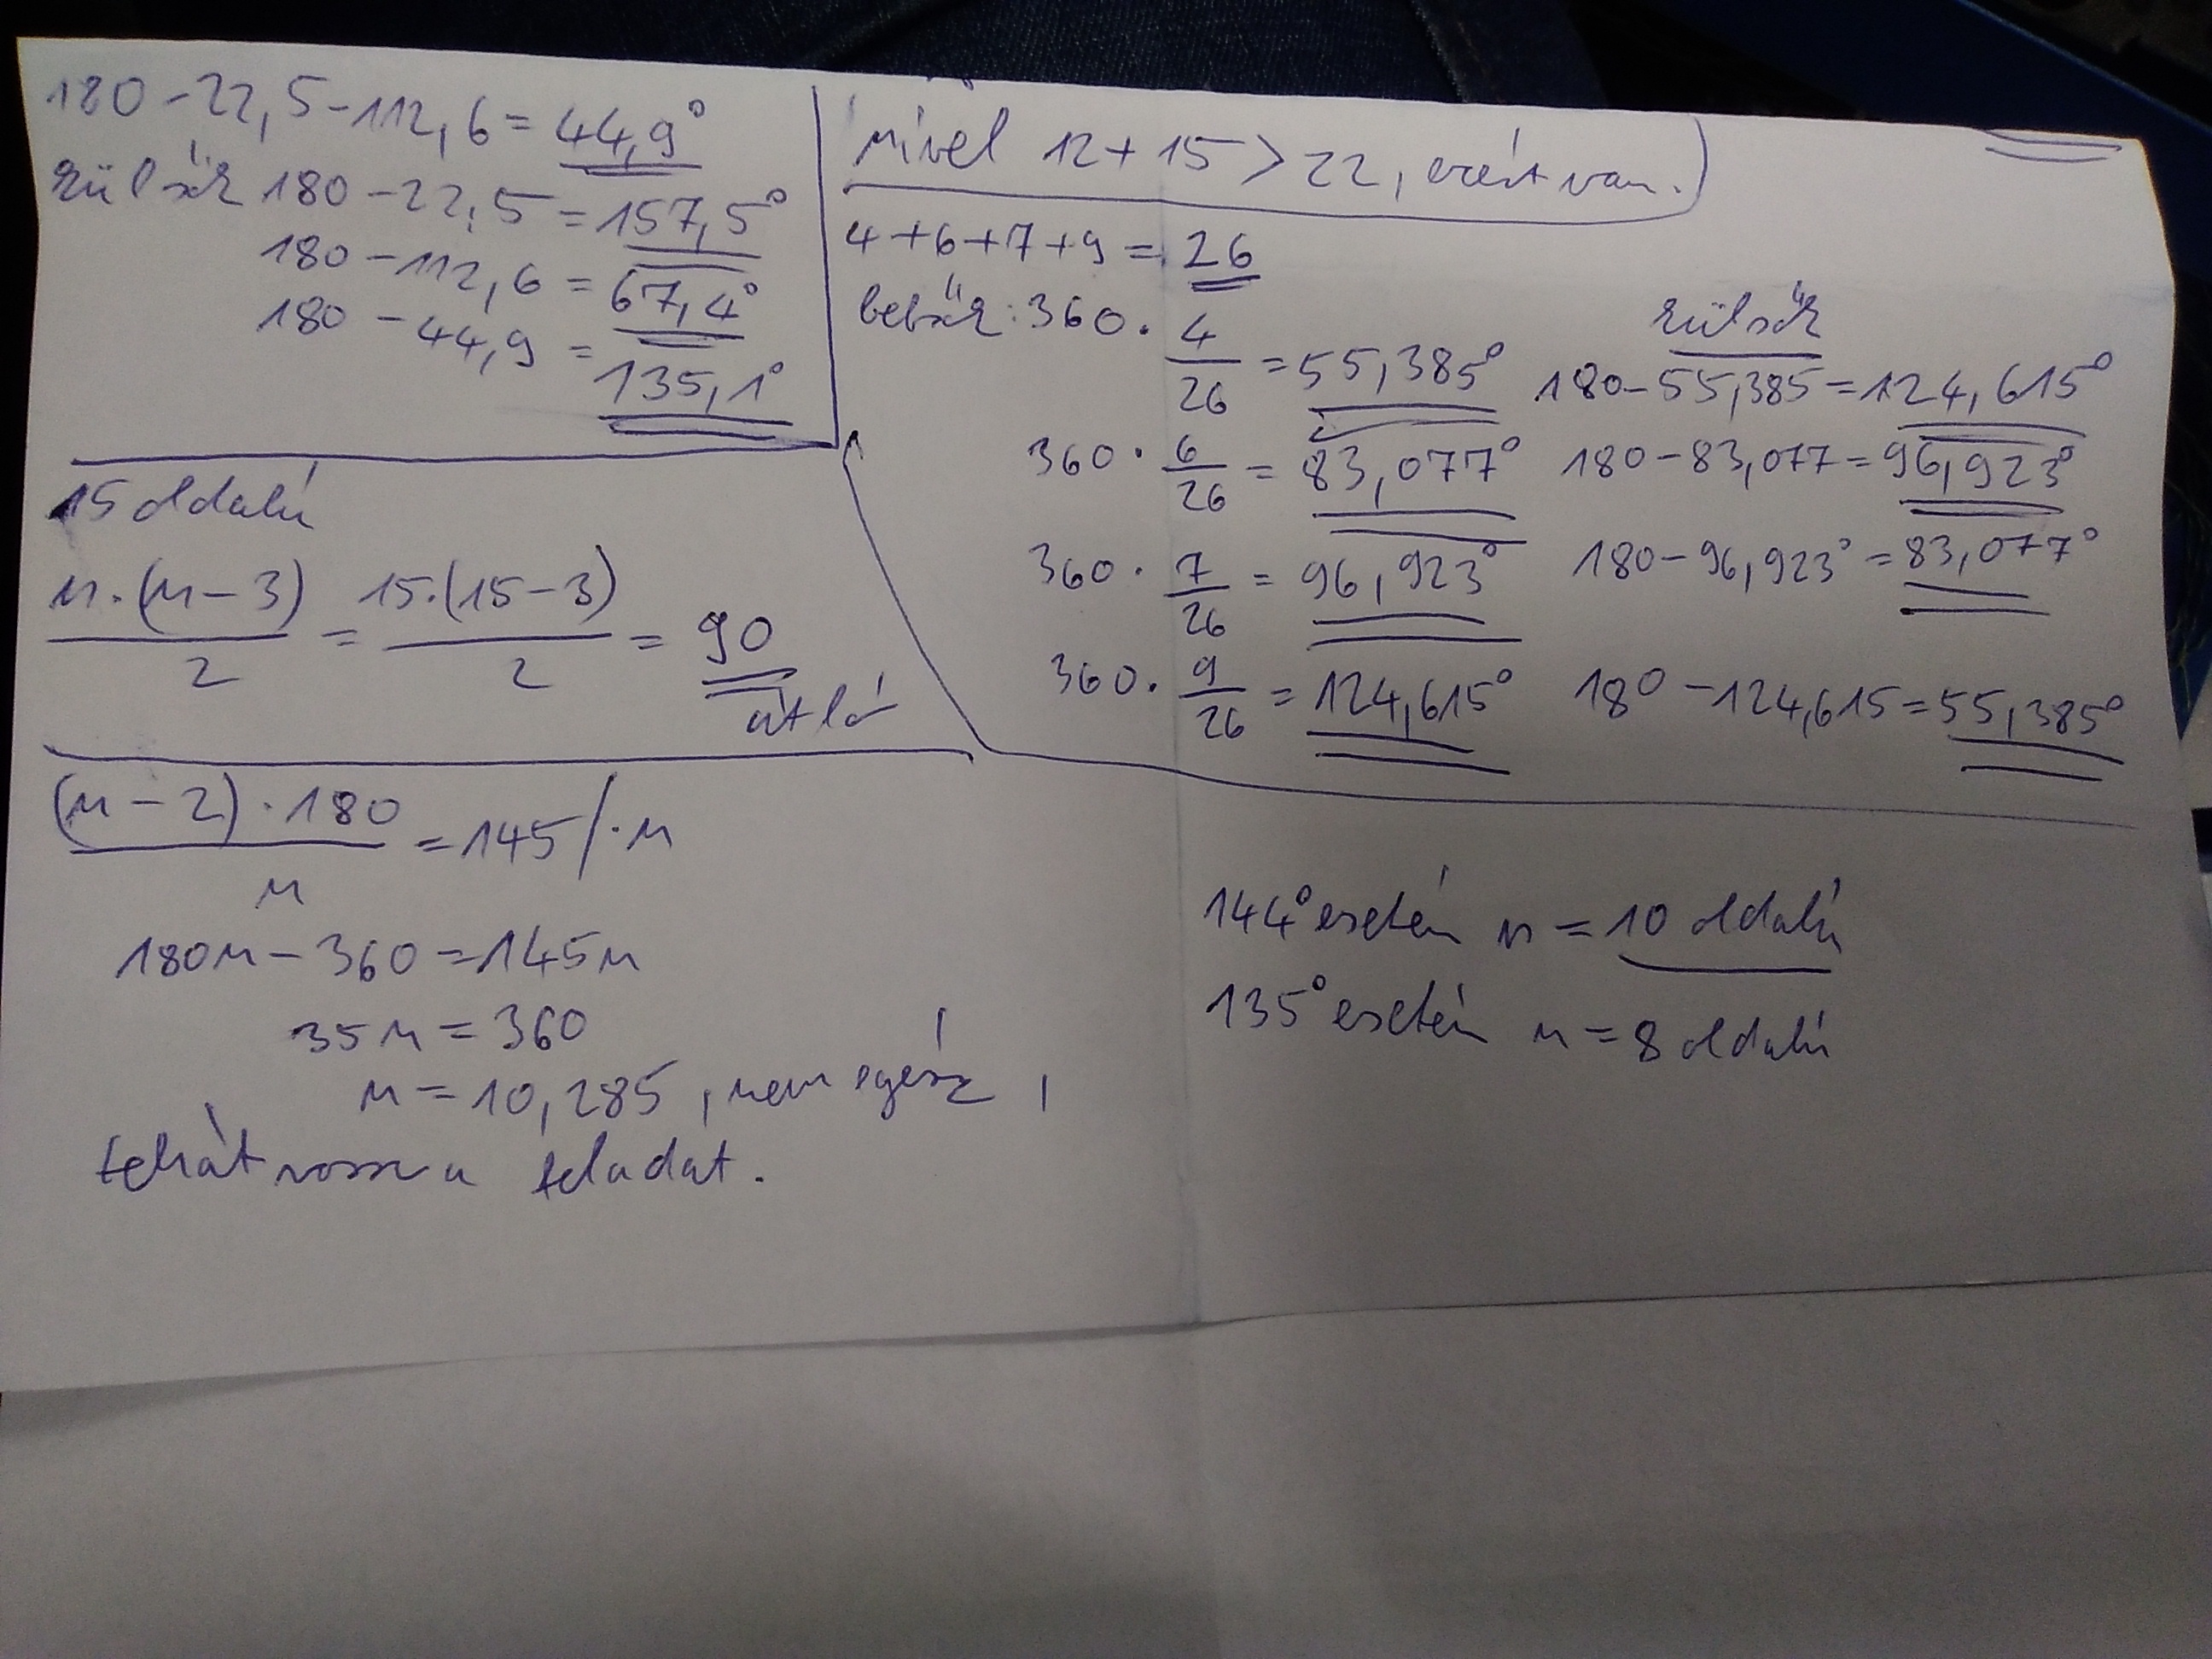 180 - 22,5 - 112,6 = 44,9°
külsők 180 - 22,5 = 157,5°
180 - 112,6 = 67,4°
180 - 44,9 = 135,1°
Mivel 12 + 15 > 22, ezért van.
4 + 6 + 7 + 9 = 26
belsők: 360 · 4/26 = 55,385°
360 · 6/26 = 83,077°
360 · 7/26 = 96,923°
360 · 9/26 = 124,615°
külsők
180 - 55,385 = 124,615°
180 - 83,077 = 96,923°
180 - 96,923° = 83,077°
180 - 124,615 = 55,385°
15 oldalú
n·(n-3)/2 = 15·(15-3)/2 = 90
átló
(n-2)·180/n = 145 /·n
180n - 360 = 145n
35n = 360
n = 10,285, nem egész,
tehát rossz a feladat.
144° esetén n = 10 oldalú
135° esetén n = 8 oldalú